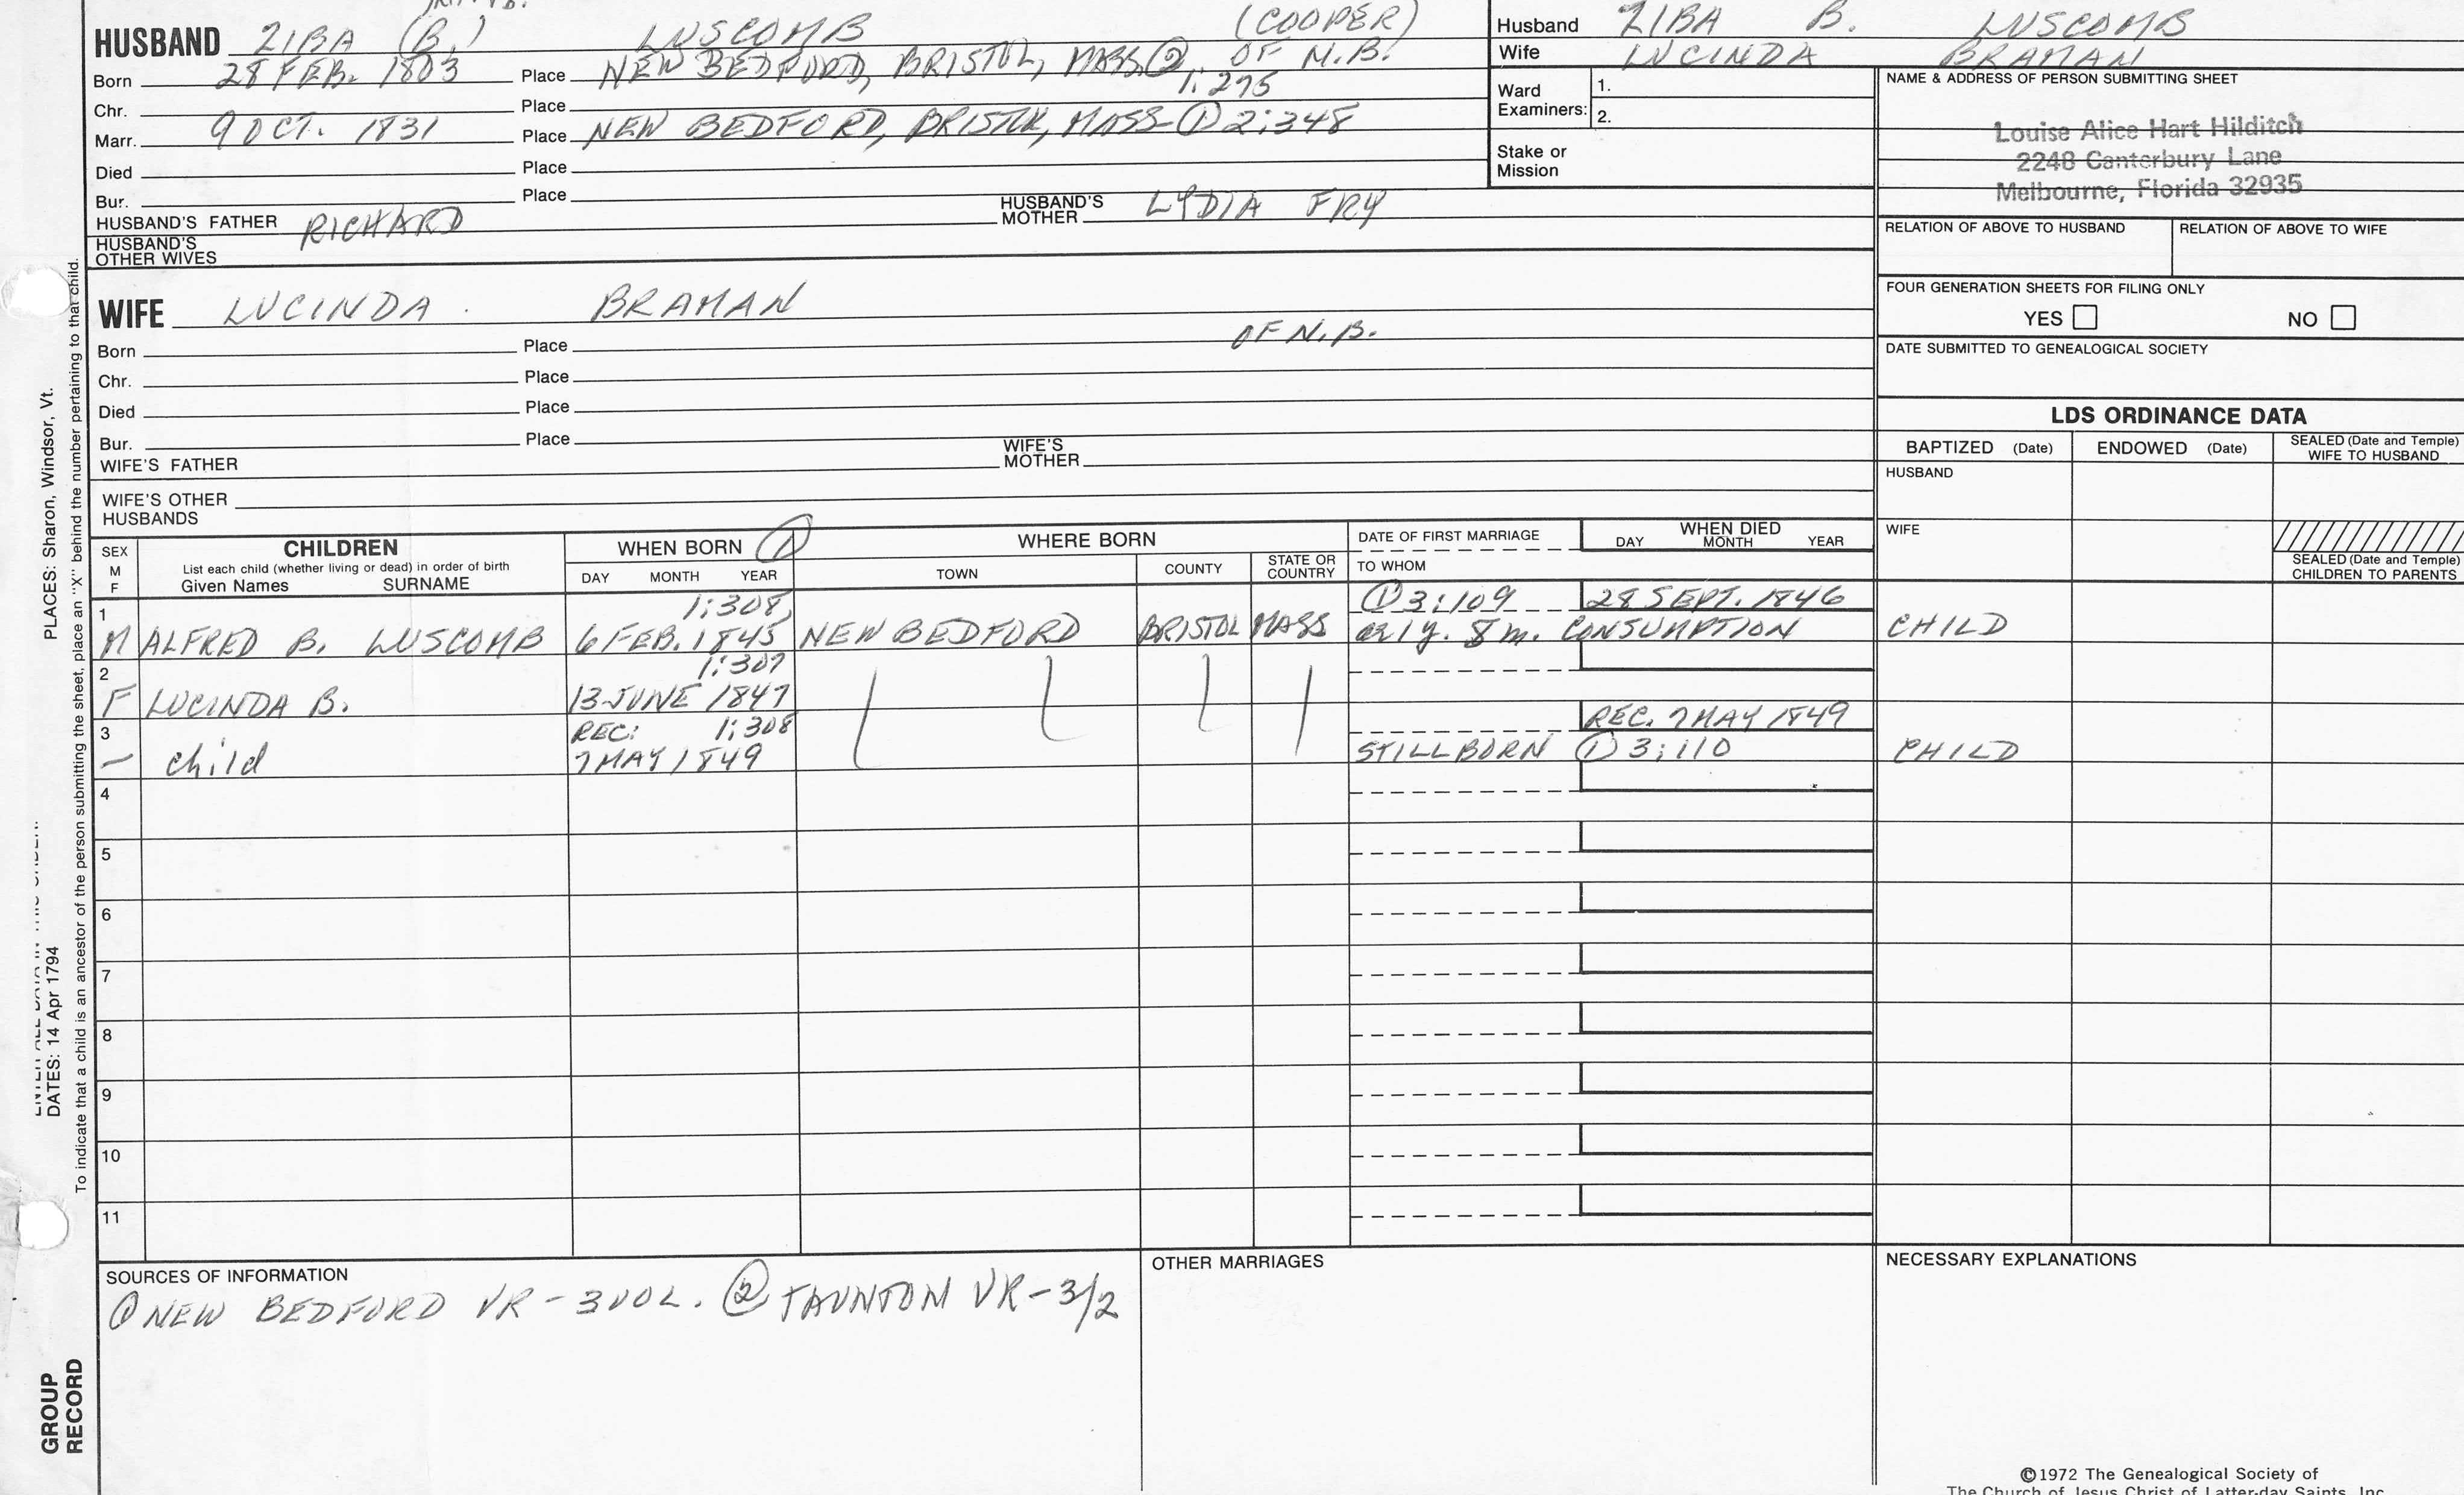 HUSBAND ZIBA (B.) LUSCOMB (COOPER)
Born 28 FEB. 1803 Place NEW BEDFORD, BRISTOL, MASS ② OF N.B.
1:275
Chr. Place
Marr. 9 OCT. 1831 Place NEW BEDFORD, BRISTOL, MASS- ① 2:348
Died Place
Bur. Place
HUSBAND'S FATHER RICHARD HUSBAND'S MOTHER LYDIA FRY
HUSBAND'S OTHER WIVES
WIFE LUCINDA BRAMAN
OF N.B.
Born Place
Chr. Place
Died Place
Bur. Place
WIFE'S FATHER WIFE'S MOTHER
WIFE'S OTHER HUSBANDS
Husband ZIBA B. LUSCOMB
Wife LUCINDA BRAMAN
Ward Examiners: 1.
2.
Stake or Mission
NAME & ADDRESS OF PERSON SUBMITTING SHEET
Louise Alice Hart Hilditch
2248 Canterbury Lane
Melbourne, Florida 32935
RELATION OF ABOVE TO HUSBAND RELATION OF ABOVE TO WIFE
FOUR GENERATION SHEETS FOR FILING ONLY
YES NO
DATE SUBMITTED TO GENEALOGICAL SOCIETY
LDS ORDINANCE DATA
BAPTIZED (Date) ENDOWED (Date) SEALED (Date and Temple) WIFE TO HUSBAND
HUSBAND
WIFE
SEALED (Date and Temple) CHILDREN TO PARENTS
SEX M F
CHILDREN
List each child (whether living or dead) in order of birth
Given Names SURNAME
WHEN BORN ①
DAY MONTH YEAR
WHERE BORN
TOWN COUNTY STATE OR COUNTRY
DATE OF FIRST MARRIAGE
TO WHOM
WHEN DIED
DAY MONTH YEAR
1 1:308, ① 3:109 28 SEPT. 1846
M ALFRED B. LUSCOMB 6 FEB. 1845 NEW BEDFORD BRISTOL MASS 1y. 8m. CONSUMPTION CHILD
2 1:307
F LUCINDA B. 13 JUNE 1847
3 REC: 1:308 REC. 7 MAY 1849
— child 7 MAY 1849 STILLBORN ① 3:110 CHILD
4
5
6
7
8
9
10
11
SOURCES OF INFORMATION
① NEW BEDFORD VR - 3 VOL. ② TAUNTON VR - 3/2
OTHER MARRIAGES
NECESSARY EXPLANATIONS
©1972 The Genealogical Society of
The Church of Jesus Christ of Latter-day Saints, Inc.
DATES: 14 Apr 1794 PLACES: Sharon, Windsor, Vt.
To indicate that a child is an ancestor of the person submitting the sheet, place an "X" behind the number pertaining to that child.
GROUP
RECORD